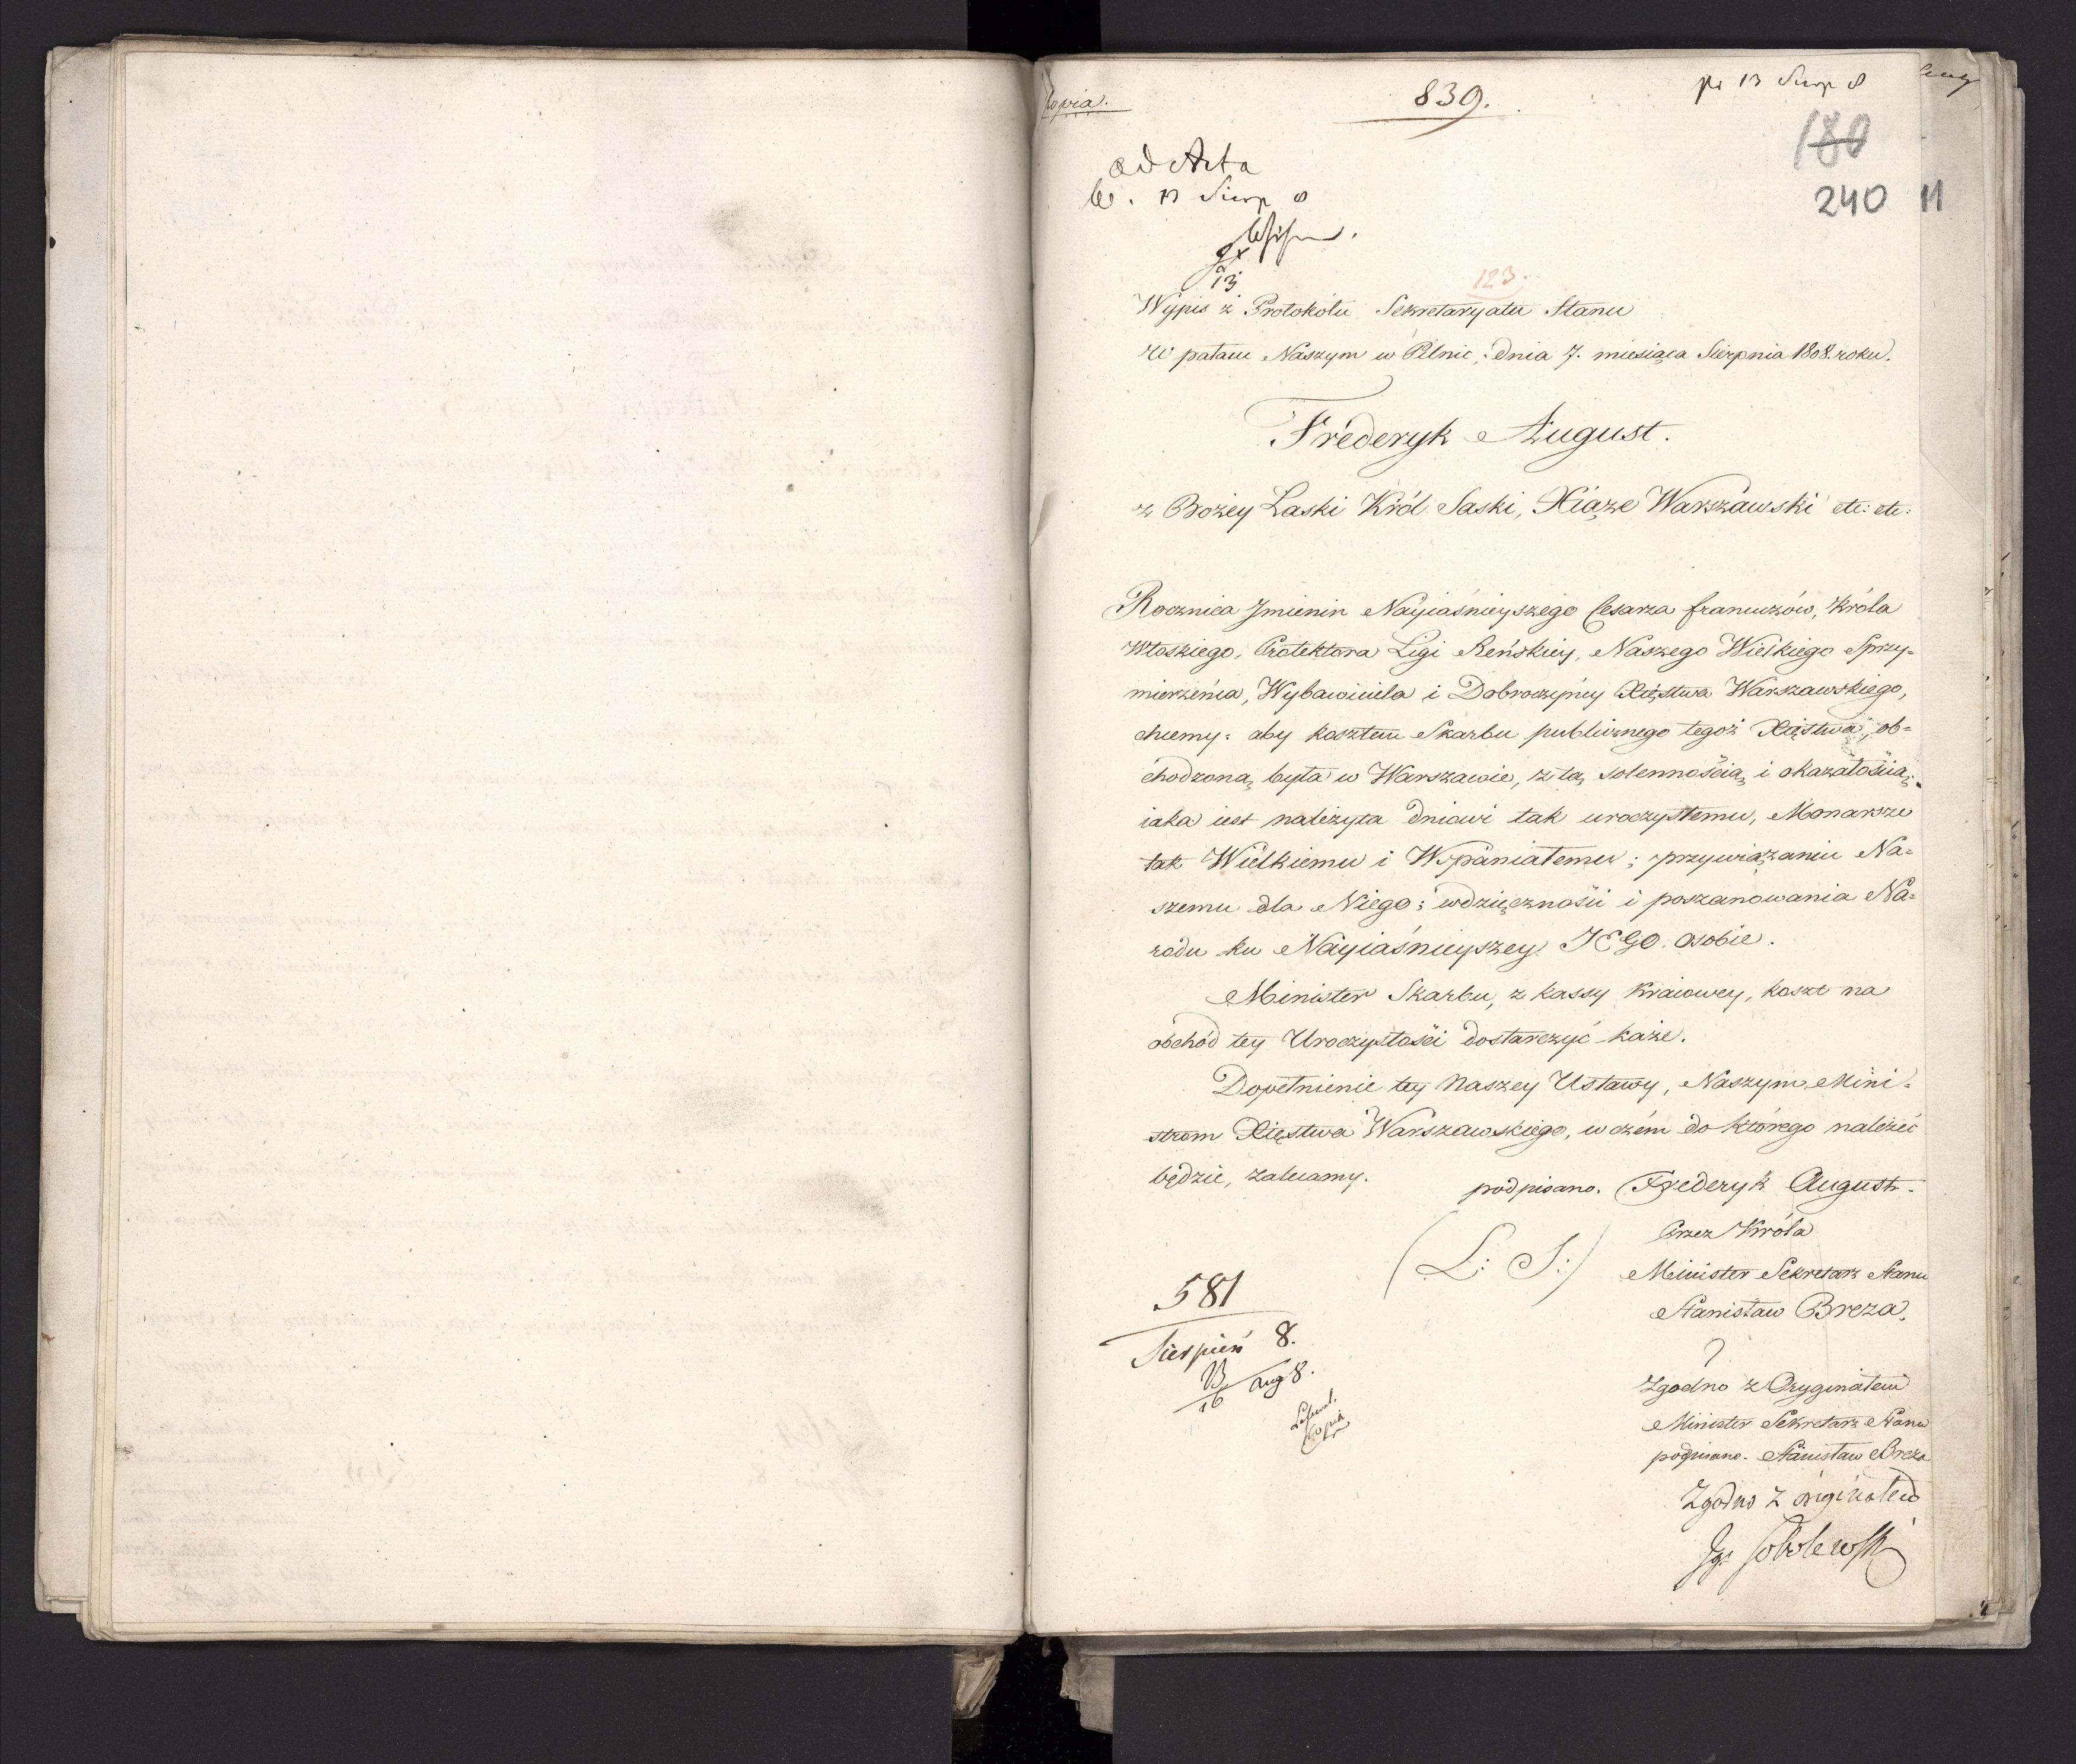 Kopia.
839.
pr 13 Sierp 8
180
240 11
ad Acta
13 Sierp 8
13
123.
Wypis z Protokółu Sekretaryatu Stanu
w pałacu Naszym w Pilnic, dnia 7. miesiąca Sierpnia 1808. roku.
Frederyk August.
z Bożey Łaski Król Saski, Xiąże Warszawski etc: etc:
Rocznica Jmienin Nayiaśnieyszego Cesarza francuzów, Króla
Włoskiego, Protektora Ligi Reńskiey, Naszego Wielkiego Sprzy=
mierzeńca, Wybawiciela i Dobroczyńcy Xięstwa Warszawskiego,
chcemy: aby kosztem Skarbu publicznego tegoż Xięstwa, ob=
chodzoną była w Warszawie, z tą solennością i okazałością:
iaka iest należyta dniowi tak uroczystemu, Monarsze
tak Wielkiemu i Wspaniałemu; przywiązaniu Na=
szemu dla Niego; wdzięczności i poszanowania Na=
rodu ku Nayiaśnieyszey JEGO osobie.
Minister Skarbu, z kassy Kraiowey, koszt na
obchód tey Uroczystości dostarczyć każe.
Dopełnienie tey Naszey Ustawy, Naszym Mini=
strom Xięstwa Warszawskiego, w czém do którego należeć
będzie, zalecamy.
podpisano. Frederyk August.
Przez Króla
(L: S:)
Minister Sekretarz Stanu
Stanisław Breza.
581
Sierpień 8.
13 Aug 8.
16
Kopia
Zgodno z Oryginałem
Minister Sekretarz Stanu
podpisano. Stanisław Breza
Zgodno z originałem
Ig: Sobolewski